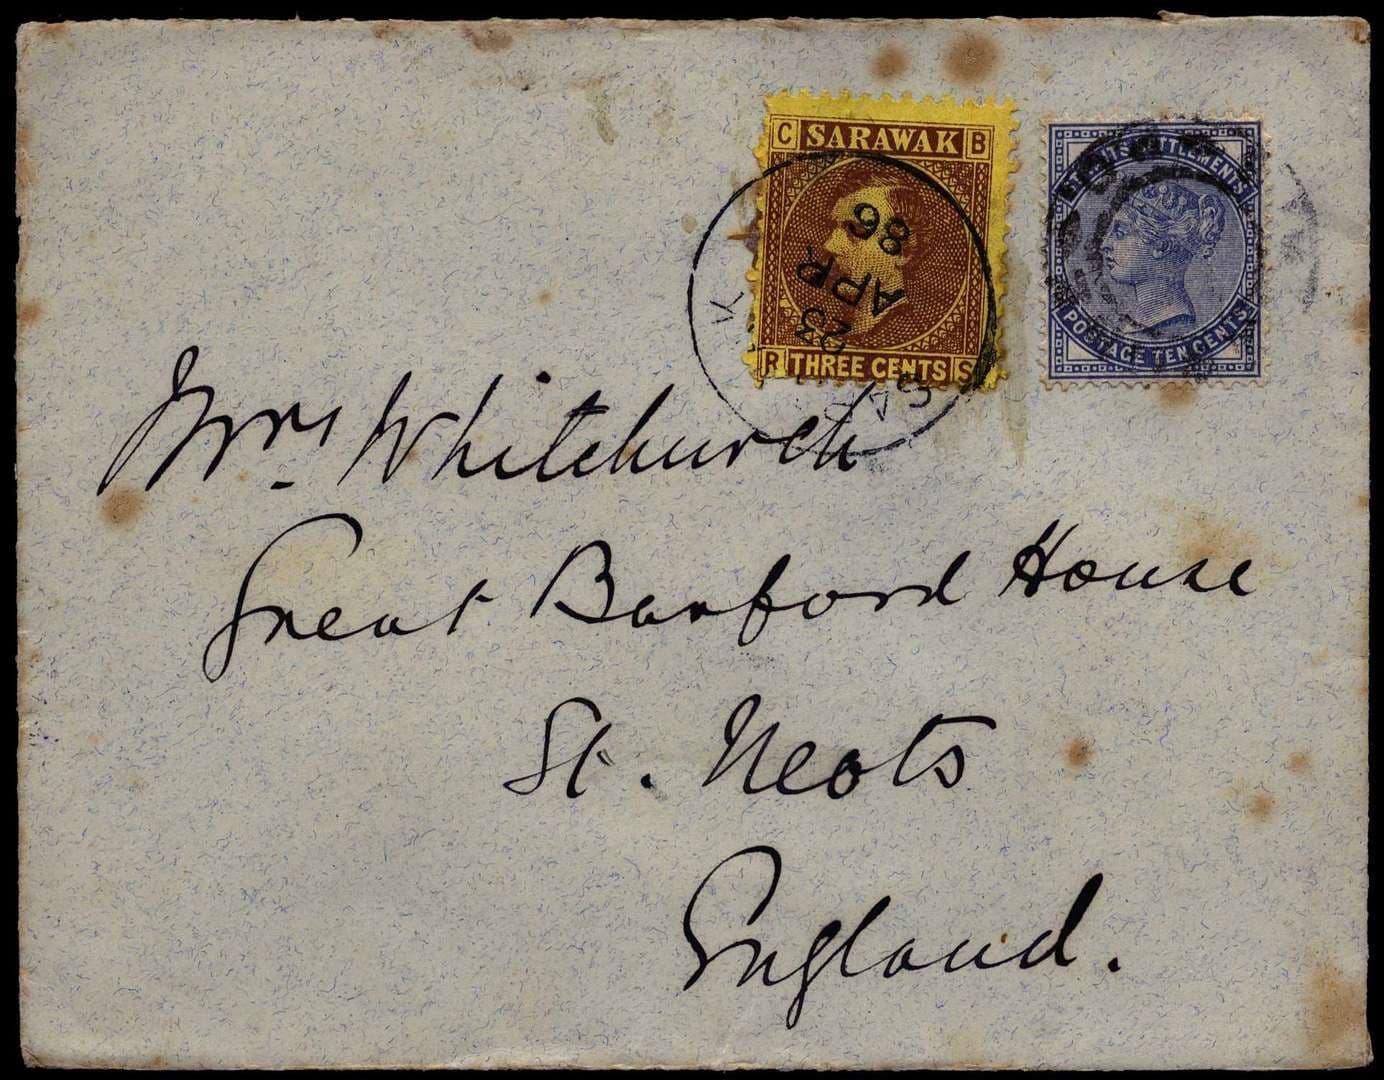 C SARAWAK B
R THREE CENTS S
STRAITS SETTLEMENTS
POSTAGE TEN CENTS
23
APR
86
Mrs. Whitchurch
Great Barford House
St. Neots
England.